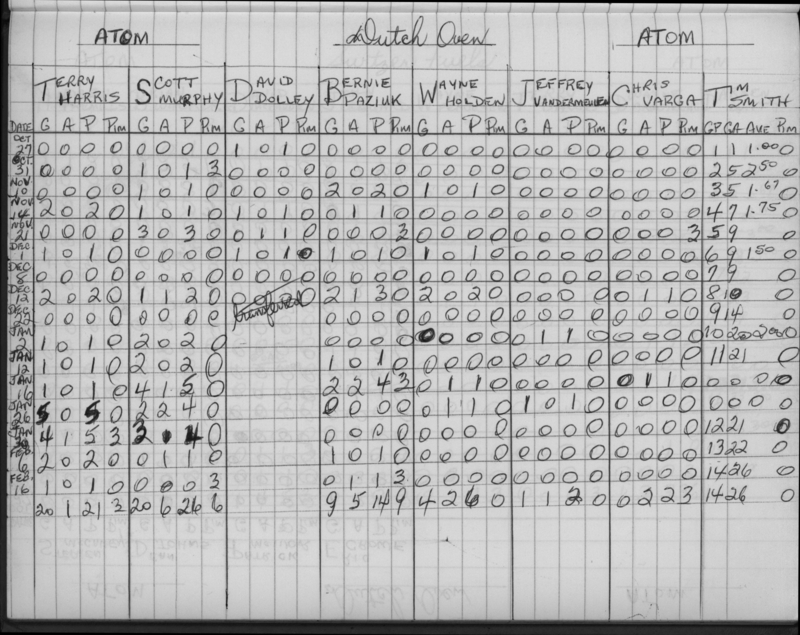 ATOM Dutch Oven ATOM
TERRY HARRIS SCOTT MURPHY DAVID DOLLEY BERNIE PAZIUK WAYNE HOLDEN JEFFREY VANDERMEULEN CHRIS VARGA TIM SMITH
DATE G A P Pim G A P Pim G A P Pim G A P Pim G A P Pim G A P Pim G A P Pim GP GA AVE Pim
OCT 27 0 0 0 0 0 0 0 0 1 0 1 0 0 0 0 0 0 0 0 0 0 0 0 0 0 0 0 0 1 1 1.00 0
OCT. 31 0 0 0 0 1 0 1 3 0 0 0 0 0 0 0 0 0 0 0 0 0 0 0 0 0 0 0 0 2 5 2.50 0
NOV. 10 0 0 0 0 1 0 1 0 0 0 0 0 2 0 2 0 1 0 1 0 0 0 0 0 0 0 0 0 3 5 1.67 0
NOV. 14 2 0 2 0 1 0 1 0 1 0 1 0 0 1 1 0 0 0 0 0 0 0 0 0 0 0 0 0 4 7 1.75 0
NOV. 21 0 0 0 0 3 0 3 0 0 1 1 0 0 0 0 3 0 0 0 0 0 0 0 0 0 0 0 3 5 9 0
DEC. 1 1 0 1 0 0 0 0 0 1 0 1 0 1 0 1 0 1 0 1 0 0 0 0 0 0 0 0 0 6 9 1.50 0
DEC. 8 0 0 0 0 0 0 0 0 0 0 0 0 0 0 0 0 0 0 0 0 0 0 0 0 0 0 0 0 7 9 0
DEC. 12 2 0 2 0 1 1 2 0 0 0 0 0 2 1 3 0 2 0 2 0 0 0 0 0 0 1 1 0 8 10 0
DEC. 22 0 0 0 0 0 0 0 0 transferred 0 0 0 0 0 0 0 0 0 0 0 0 0 0 0 0 9 14 0
JAN 2 1 0 1 0 2 0 2 0 0 0 0 0 0 0 0 0 0 1 1 0 0 0 0 0 10 20 2.00 0
JAN 12 1 0 1 0 2 0 2 0 1 0 1 0 0 0 0 0 0 0 0 0 0 0 0 0 11 21 0
JAN 16 1 0 1 0 4 1 5 0 2 2 4 3 0 1 1 0 0 0 0 0 0 1 1 0 0 0 0 0
JAN 26 5 0 5 0 2 2 4 0 0 0 0 0 0 1 1 0 1 0 1 0 0 0 0 0 0 0 0 0
JAN 4 1 5 3 3 1 4 0 0 0 0 0 0 0 0 0 0 0 0 0 0 0 0 0 12 21 0
FEB. 6 2 0 2 0 0 1 1 0 1 0 1 0 0 0 0 0 0 0 0 0 0 0 0 0 13 22 0
FEB. 16 1 0 1 0 0 0 0 3 0 1 1 3 0 0 0 0 0 0 0 0 0 0 0 0 14 26 0
20 1 21 3 20 6 26 6 9 5 14 9 4 2 6 0 1 1 2 0 0 2 2 3 14 26 0